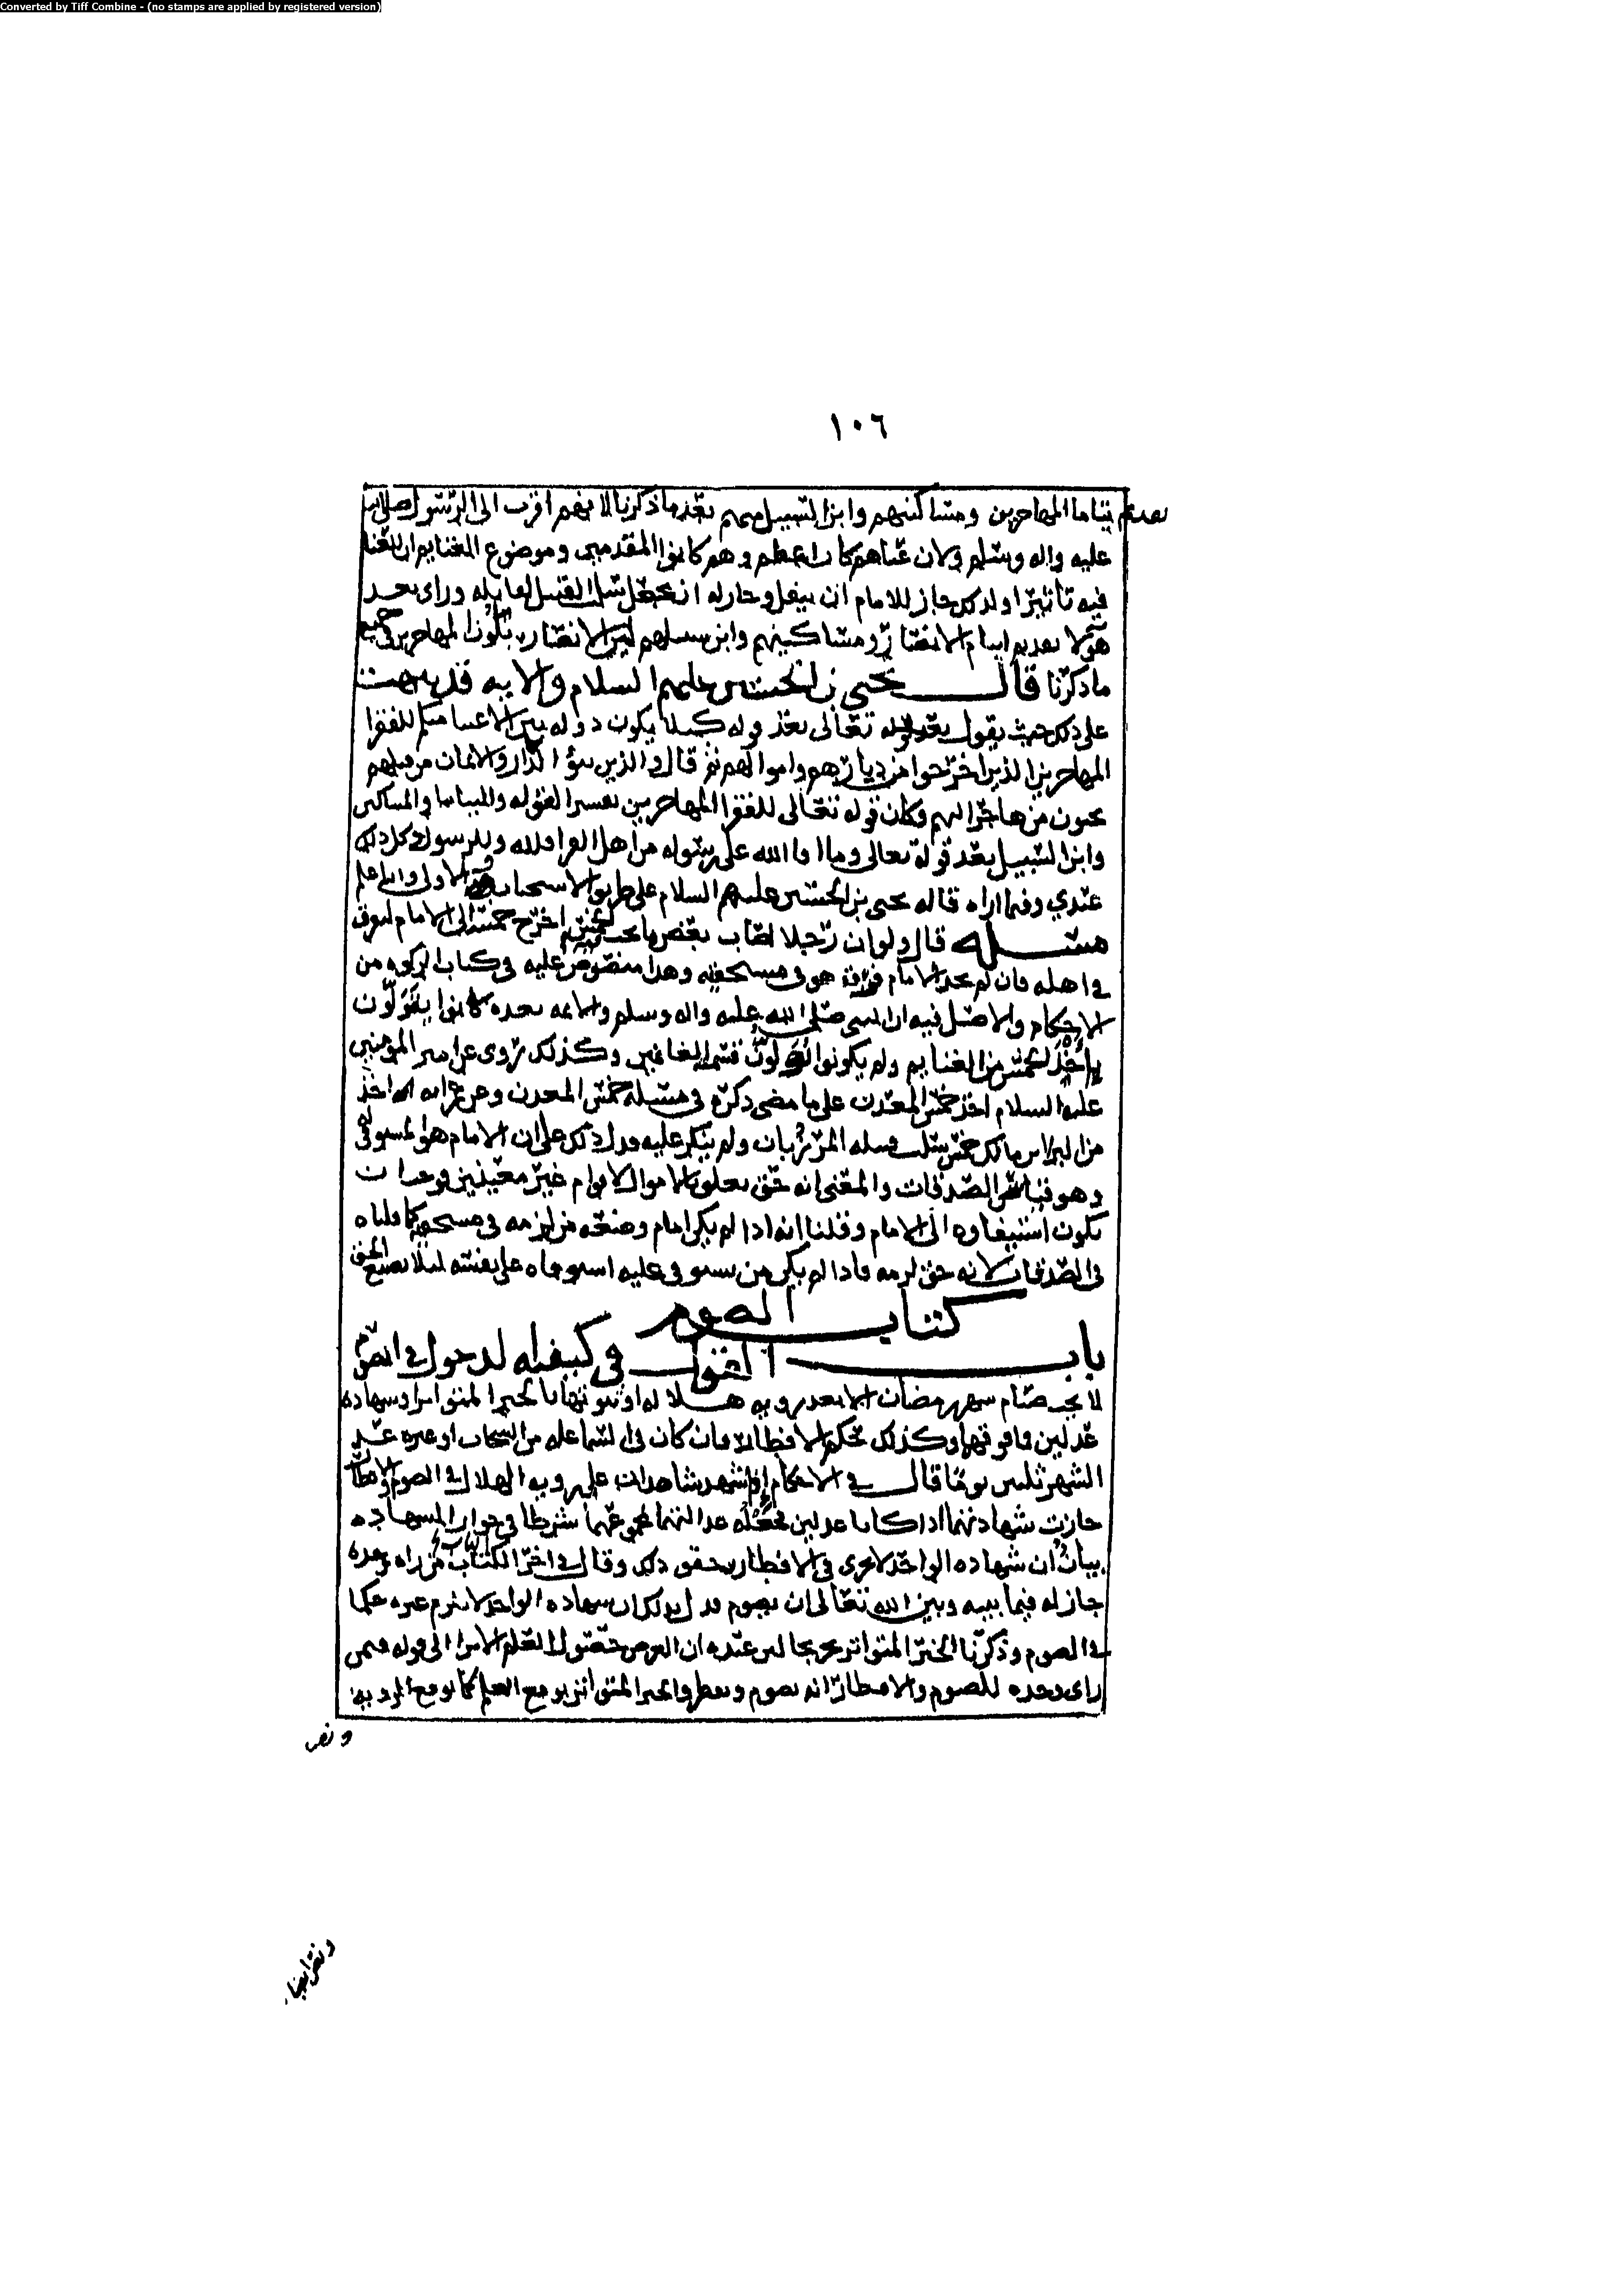 Converted by Tiff Combine - (no stamps are applied by registered version)
١٠٦
يتاما المهاجرين ومساكنهم وابن السبيل منهم بعد ما ذكرنا لانهم اقرب الى الرسول صلى الله
عليه واله وسلم ولان عناهم كان اعظم وهم كانوا المقدمين وموضوع الغنايم ان للغنا
فيه تاثيرا ولذلك جاز للامام ان ينفل وجاز له ان يجعل سلب القتيل لقاتله وراى بعد
هولا تقديم ايتام الانصار ومساكينهم وابن سبيلهم المهاجرين في جميع
ما ذكرنا قال يحيى بن الحسين عليهم السلام والايه قد نبهت
على ذلك حيث يقول تعالى بعد قوله كيلا يكون دوله بين الاغنيا منكم للفقرا
المهاجرين الذين اخرجوا من ديارهم واموالهم ثم قال والذين تبوؤ الدار والايمان من قبلهم
يحبون من هاجر اليهم وكان قوله تعالى للفقرا المهاجرين تفسيرا لقوله واليتاما والمساكين
وابن السبيل بعد قوله تعالى وما افا الله على رسوله من اهل القرا فلله وللرسول وكل ذلك
عندي وفيما اراه قاله يحيى بن الحسين عليهم السلام على طريق الاستحباب الاولى والله اعلم
مسئله قال ولو ان رجلا اصاب بعض ما يجب فيه الخمس اخرج خمسه الى الامام ليفرقه
في اهله فان لم يجد الامام فرقه هو في مستحقيه وهذا منصوص عليه في كتاب الزكوه من
الاحكام والاصل فيه ان النبي صلى الله عليه واله وسلم والايمه بعده كانوا يتولون
اخذ الخمس من الغنايم ولم يكونوا يولون قسمه الغانمين وكذلك روى عن امير المومنين
عليه السلام اخذ خمس المعدن على ما مضى ذكره في مسئله خمس المعدن وعن عمر انه اخذ
من البرا بن مالك خمس سلب قتيله المرزبان ولم ينكر عليه فدل ذلك على ان الامام هو المستوفي له
وهو قياس الصدقات والمعنى انه حق يتعلق بالاموال لاقوام غير معينين فوجب ان
يكون استيفاوه الى الامام وقلنا انه اذا لم يكن امام وضعه من لزمه في مستحقيه كما قلناه
في الصدقات لانه حق لزمه فاذا لم يكن من يستوفي عليه استوفاه على نفسه ليلا يضيع الحق
كتاب الصوم
باب القول في كيفيه الدخول في الصوم
لا يجب صيام شهر رمضان الا بعد رويه هلاله او ثبوتها بالخبر المتواتر او شهاده
عدلين فما فوقهما وكذلك حكم الافطار فان كان في السما عله من السحاب او غيره عد
الشهر ثلثين يوما قال في الاحكام اذا شهد شاهدان على رويه الهلال في الصوم والافطار
جازت شهادتهما اذا كانا عدلين فجعل عدالتهما بمجموعهما شرطا في جواز الشهاده
بيان ان شهاده الواحد لا تجزي في الافطار يحقق ذلك وقال في اخر الكتاب من راه وحده
جاز له فيما بينه وبين الله تعالى ان يصوم فدل بذلك ان شهاده الواحد لا تلزم غيره حكما
في الصوم وذكرنا الخبر المتواتر تخريجا لان عنده ان الغرض حصول العلم الا ترا الى قوله فيمن
راى وحده للصوم والافطار انه يصوم ويفطر والخبر المتواتر يوقع العلم كما توقع الرويه
ونص